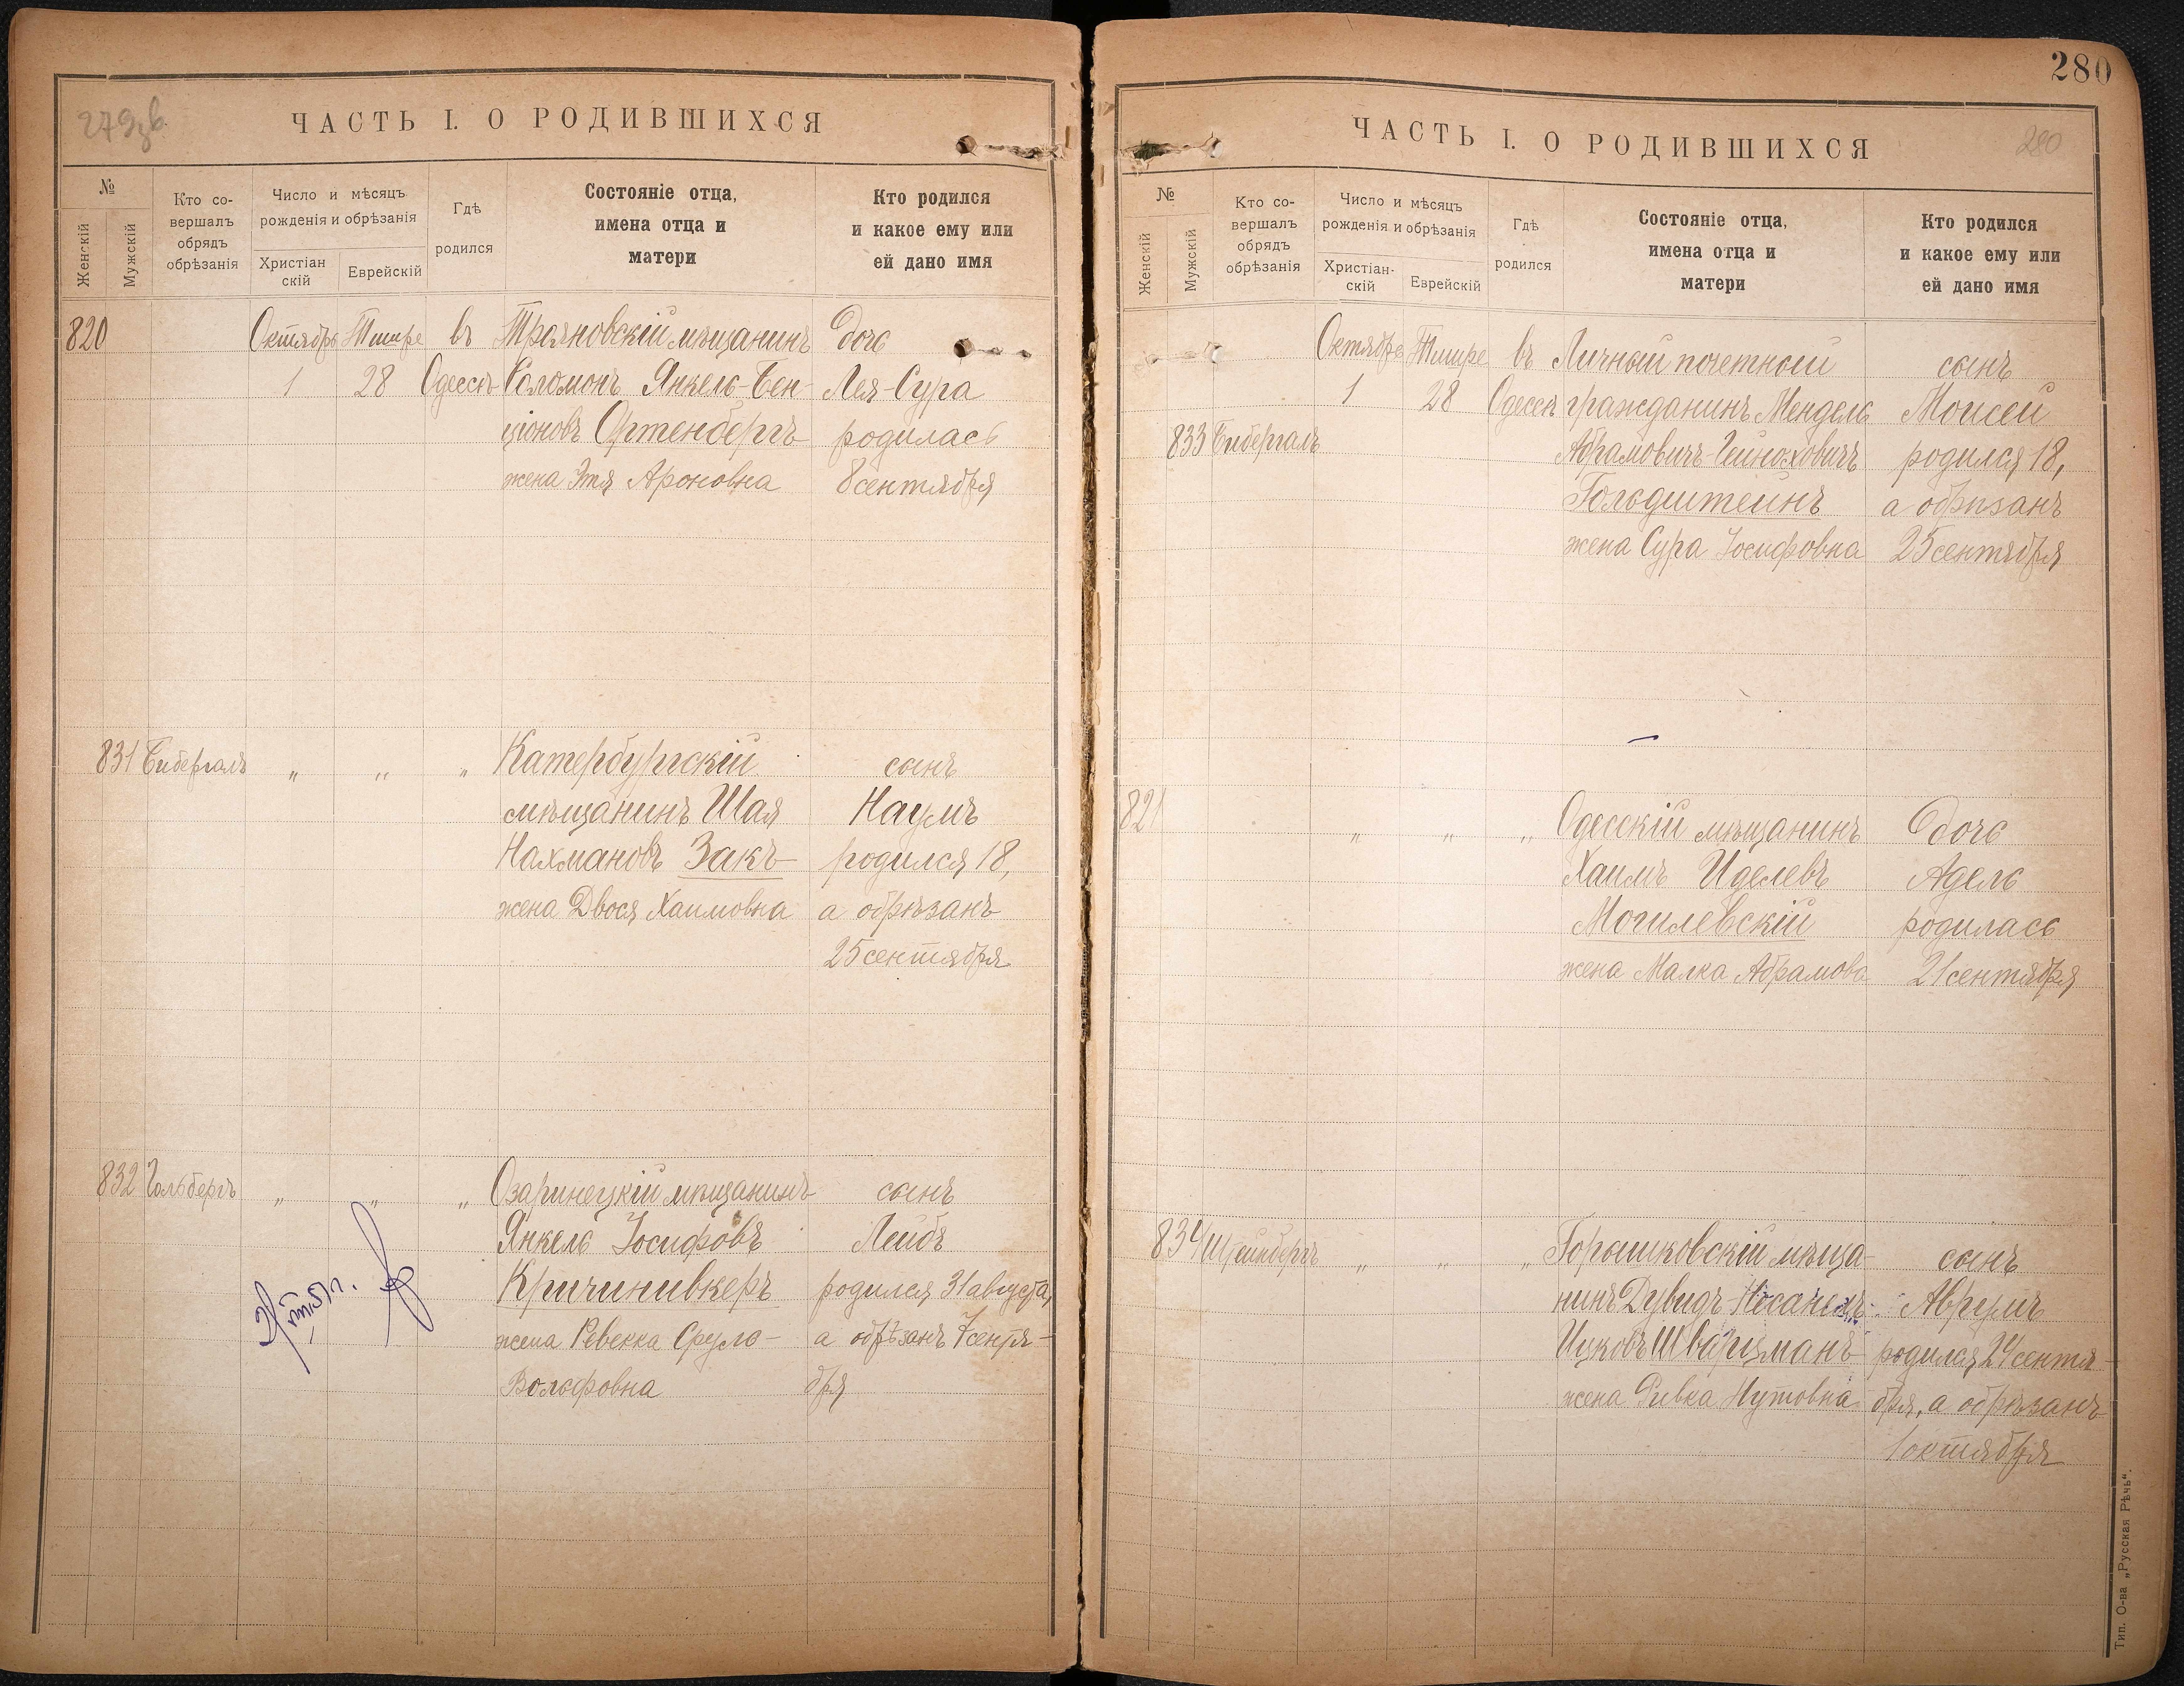 279об.
ЧАСТЬ I. О РОДИВШИХСЯ
№
Женскій
Мужскій
Кто со-
вершалъ
обрядъ
обрѣзанія
Число и мѣсяцъ
рожденія и обрѣзанія
Христіан
скій
Еврейскій
Гдѣ
родился
Состояніе отца,
имена отца и
матери
Кто родился
и какое ему или
ей дано имя
820 Октября Тишре въ Трояновскій мѣщанинъ дочь
1 28 Одессѣ Соломонъ Янкель-Бен- Лея-Сура
ціоновъ Ортенбергъ родилась
жена Этя Ароновна 8 сентября
831 Бибергалъ " " " Катербургскій сынъ
мѣщанинъ Шая Наумъ
Нахмановъ Закъ родился 18,
жена Двося Хаимовна а обрѣзанъ
25 сентября
832 Гольбергъ " " " Озаринецкій мѣщанинъ сынъ
Янкель Іосифовъ Лейбъ
Кричинивкеръ родился 31 августа,
жена Ревекка Сруль- а обрѣзанъ 7 сентя-
Вольфовна бря
280
ЧАСТЬ I. О РОДИВШИХСЯ
280
№
Женскій
Мужскій
Кто со-
вершалъ
обрядъ
обрѣзанія
Число и мѣсяцъ
рожденія и обрѣзанія
Христіан-
скій
Еврейскій
Гдѣ
родился
Состояніе отца,
имена отца и
матери
Кто родился
и какое ему или
ей дано имя
Октября Тишре въ Личный почетный сынъ
1 28 Одессѣ гражданинъ Мендель Моисей
833 Бибергалъ Абрамовичъ-Гейноховичъ родился 18,
Гольдштейнъ а обрѣзанъ
жена Сура Іосифовна 25 сентября
821 " " " Одесскій мѣщанинъ дочь
Хаимъ Иделевъ Адель
Могилевскій родилась
жена Малка Абрамова 21 сентября
834 Штейнбергъ " " " Горышковскій мѣща- сынъ
нинъ Дувидъ-Несанель- Аврумъ
Ицковъ Шварцманъ родился 24 сентя-
жена Ривка Нутовна бря, а обрѣзанъ
1 октября
Тип. О-ва „Русская Рѣчь“.